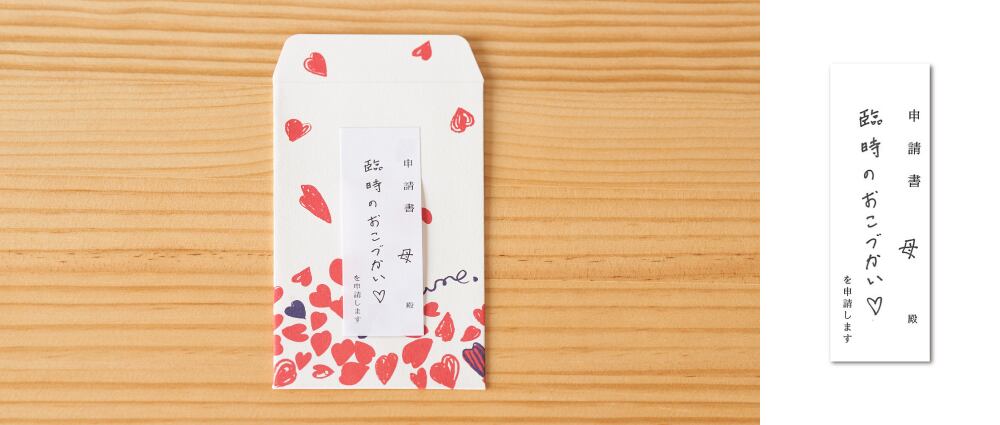 申請書 母 殿
臨時のおこづかい♡
を申請します
申請書 母 殿
臨時のおこづかい♡
を申請します